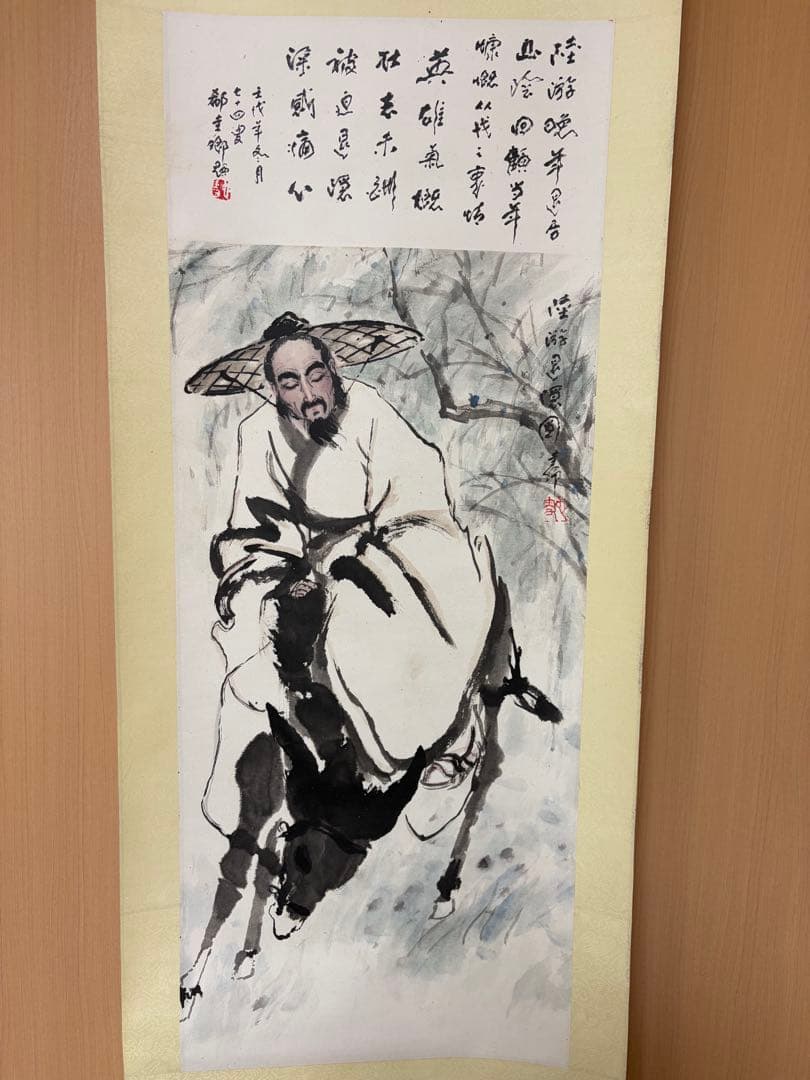 陸游晚年退居
山陰回顧當年
慷慨從戎之豪情
英雄氣概
壯志未酬
被迫退還
深感痛心
壬戌年冬月
七十四叟
陸游退還圖